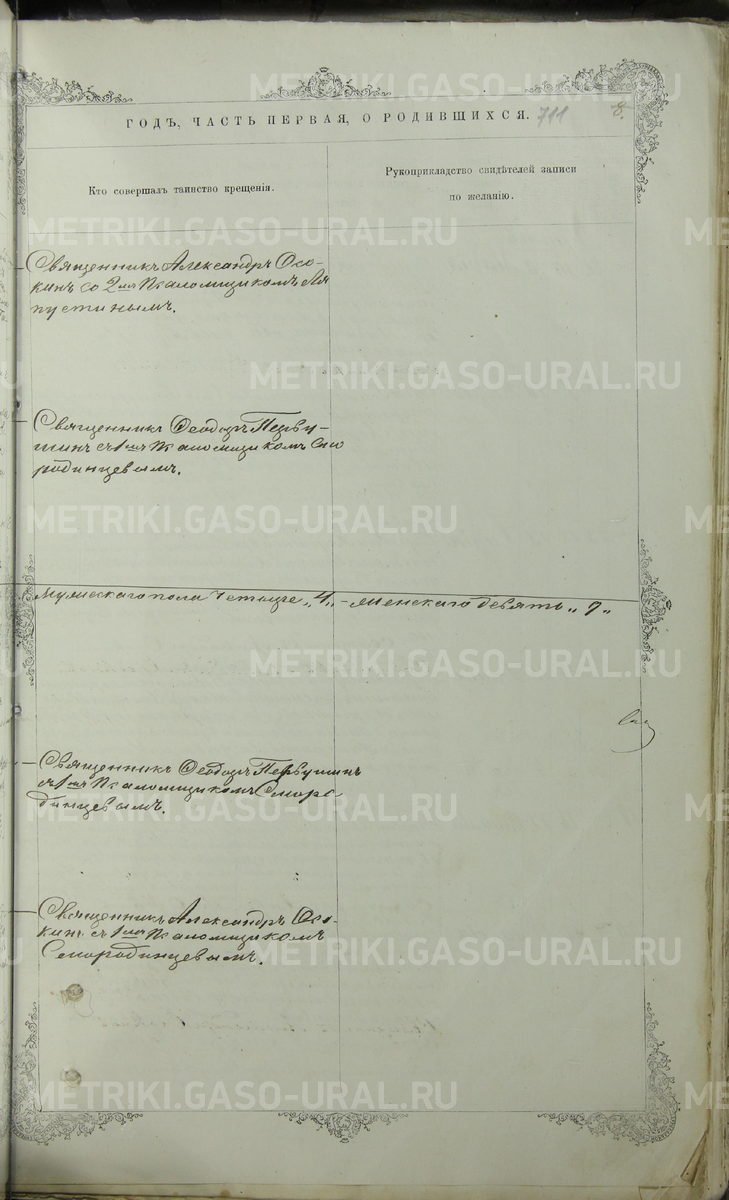 METRIKI.GASO-URAL.RU
ГОДЪ, ЧАСТЬ ПЕРВАЯ, О РОДИВШИХСЯ. 711 8.
Кто совершалъ таинство крещенія.
Рукоприкладство свидѣтелей записи
по желанію.
Священникъ Александръ Осо-
кинъ со 2мъ Псаломщикомъ Ля
пустинымъ.
Священникъ Ѳеодоръ Перву-
шинъ съ 1мъ Псаломщикомъ Смо
родинцевымъ.
Мужескаго пола Четыре „4„ - Женскаго девять „9„
Священникъ Ѳеодоръ Первушинъ
съ 1мъ Псаломщикомъ Сморо-
динцевымъ.
Священникъ Александръ Осо-
кинъ съ 1мъ Псаломщикомъ
Смородинцевымъ.